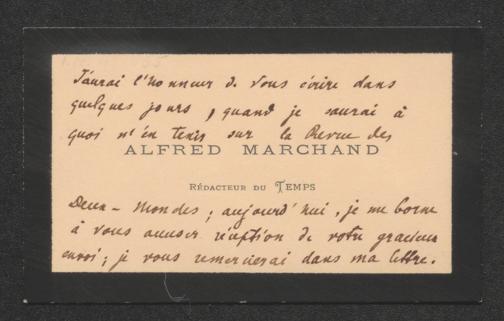 J'aurai l'honneur de vous écrire dans
quelques jours, quand je saurai à
quoi m'en tenir sur la Revue des
ALFRED MARCHAND
RÉDACTEUR DU TEMPS
Deux-Mondes; aujourd'hui, je me borne
à vous accuser réception de votre gracieux
envoi; je vous remercierai dans ma lettre.